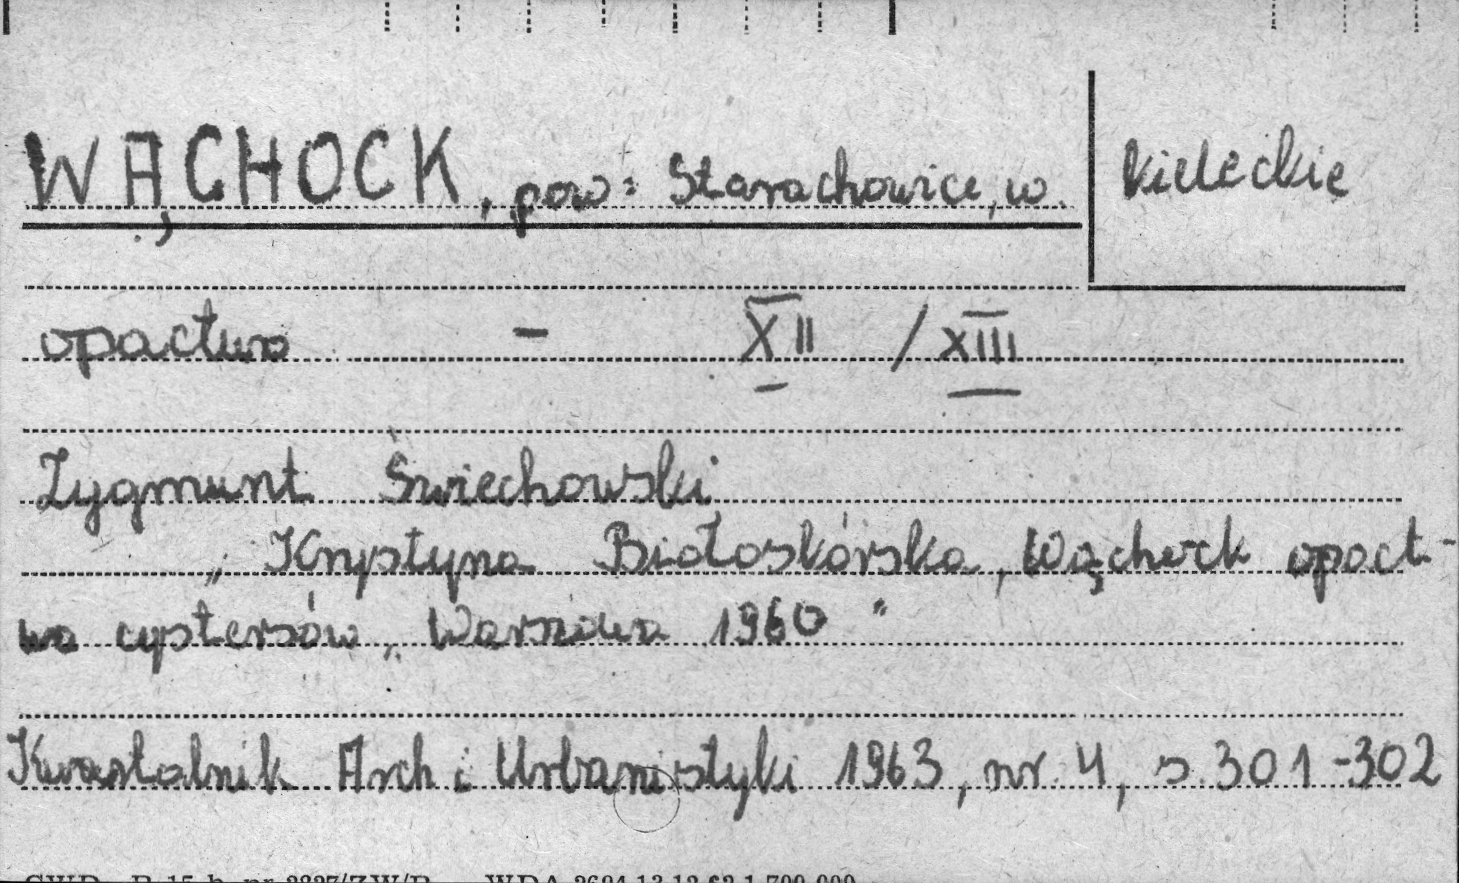 WĄCHOCK, pow: Starachowice, w. kieleckie
opactwo - XII / XIII
Zygmunt Świechowski
„ Krystyna Białoskórska, Wąchock opact-
wo cystersów, Warszawa 1960 "
Kwartalnik Arch i Urbanistyki 1963, nr. 4, s. 301-302